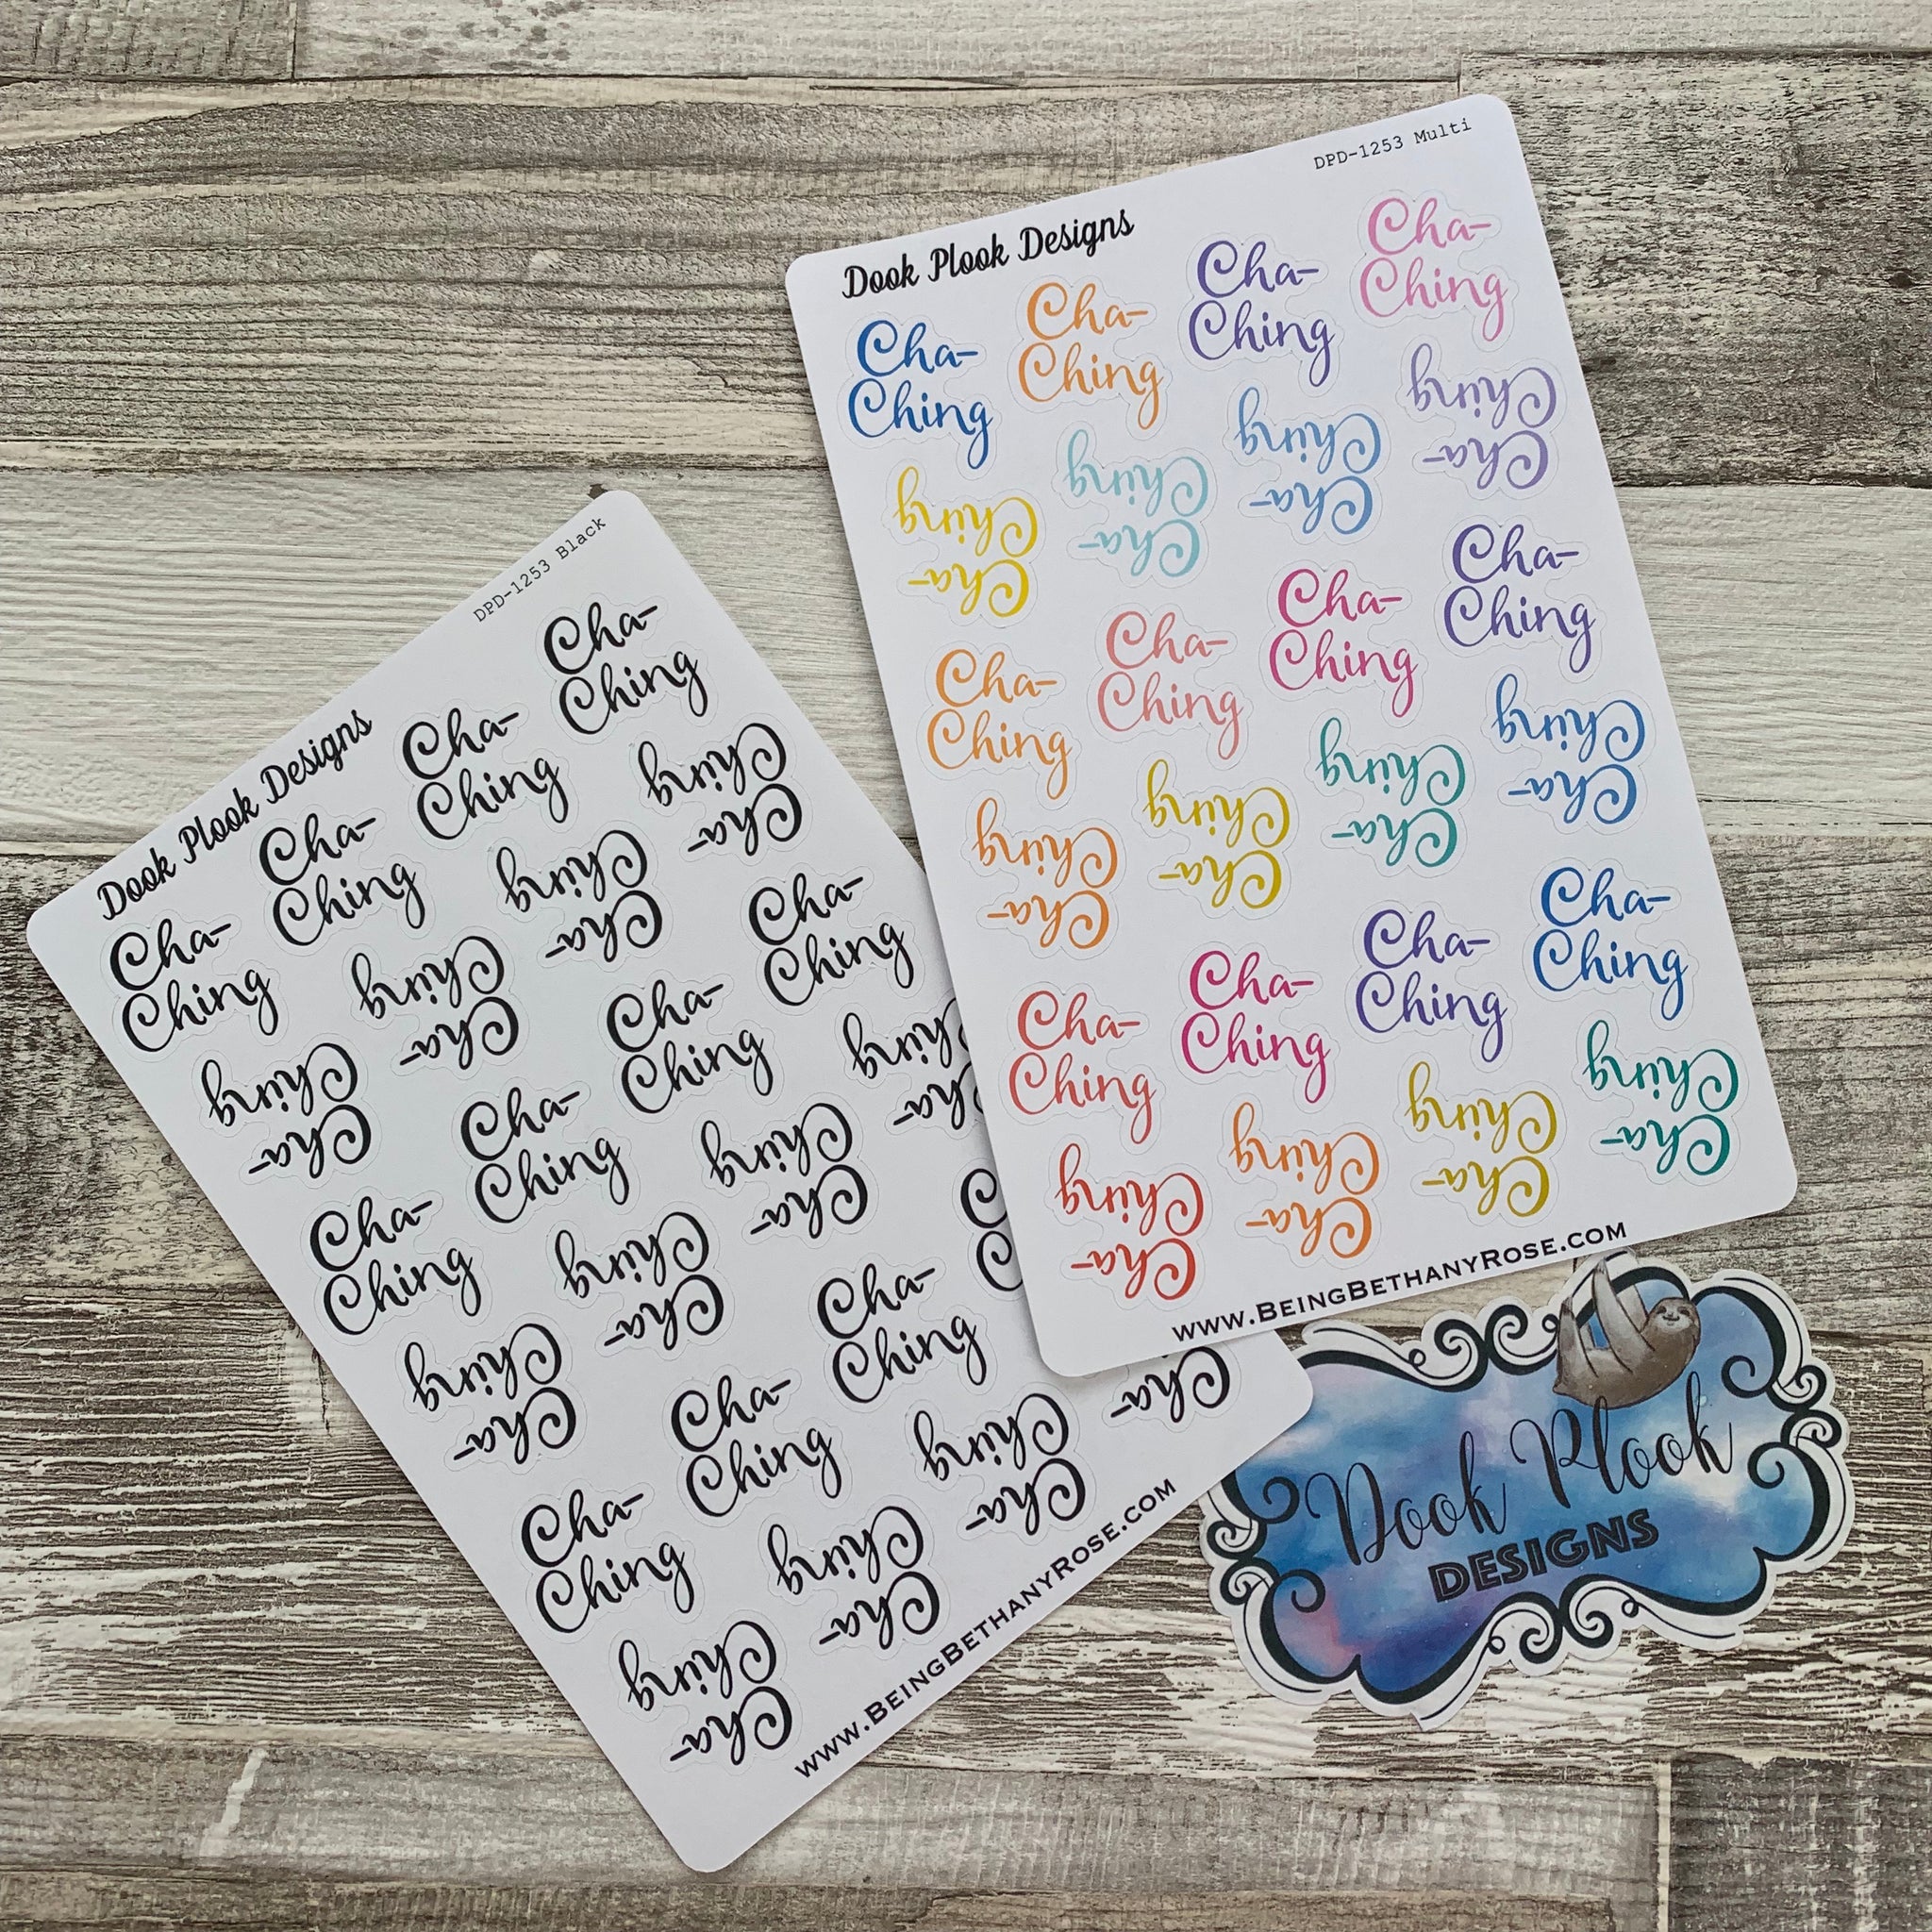 Dook Plook Designs
DPD-1253 Black
Cha-
Ching
Cha-
Ching
Cha-
Ching
Cha-
Ching
Cha-
Ching
Cha-
Ching
Cha-
Ching
Cha-
Ching
Cha-
Ching
Cha-
Ching
Cha-
Ching
Cha-
Ching
Cha-
Ching
Cha-
Ching
Cha-
Ching
Cha-
Ching
Cha-
Ching
Cha-
Ching
Cha-
Ching
Cha-
Ching
Cha-
Ching
Cha-
www.BeingBethanyRose.com
Dook Plook Designs
DPD-1253 Multi
Cha-
Ching
Cha-
Ching
Cha-
Ching
Cha-
Ching
Cha-
Ching
Cha-
Ching
Cha-
Ching
Cha-
Ching
Cha-
Ching
Cha-
Ching
Cha-
Ching
Cha-
Ching
Cha-
Ching
Cha-
Ching
Cha-
Ching
Cha-
Ching
Cha-
Ching
Cha-
Ching
Cha-
Ching
Cha-
Ching
Cha-
Ching
Cha-
Ching
Cha-
Ching
Cha-
Ching
www.BeingBethanyRose.com
Dook Plook
DESIGNS